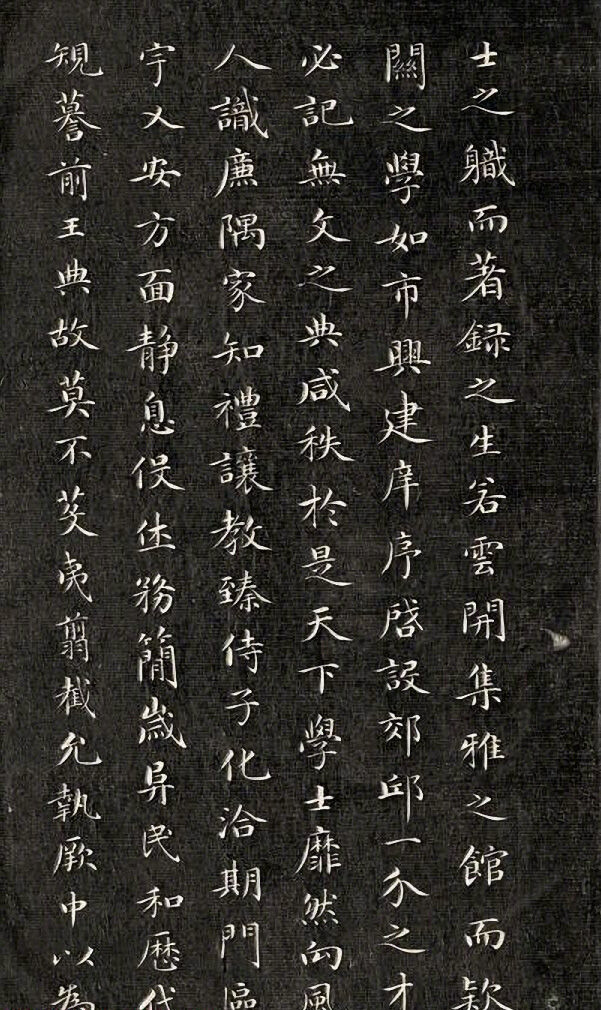 士之職而著録之生若雲開集雅之館而款
關之學如市興建庠序啓設郊邱一介之才
必記無文之典咸秩於是天下學士靡然向風
人識廉隅家知禮讓教臻侍子化洽期門區
宇乂安方面静息役休務簡歲阜民和歷代
規謩前王典故莫不芟夷翦截允執厥中以為